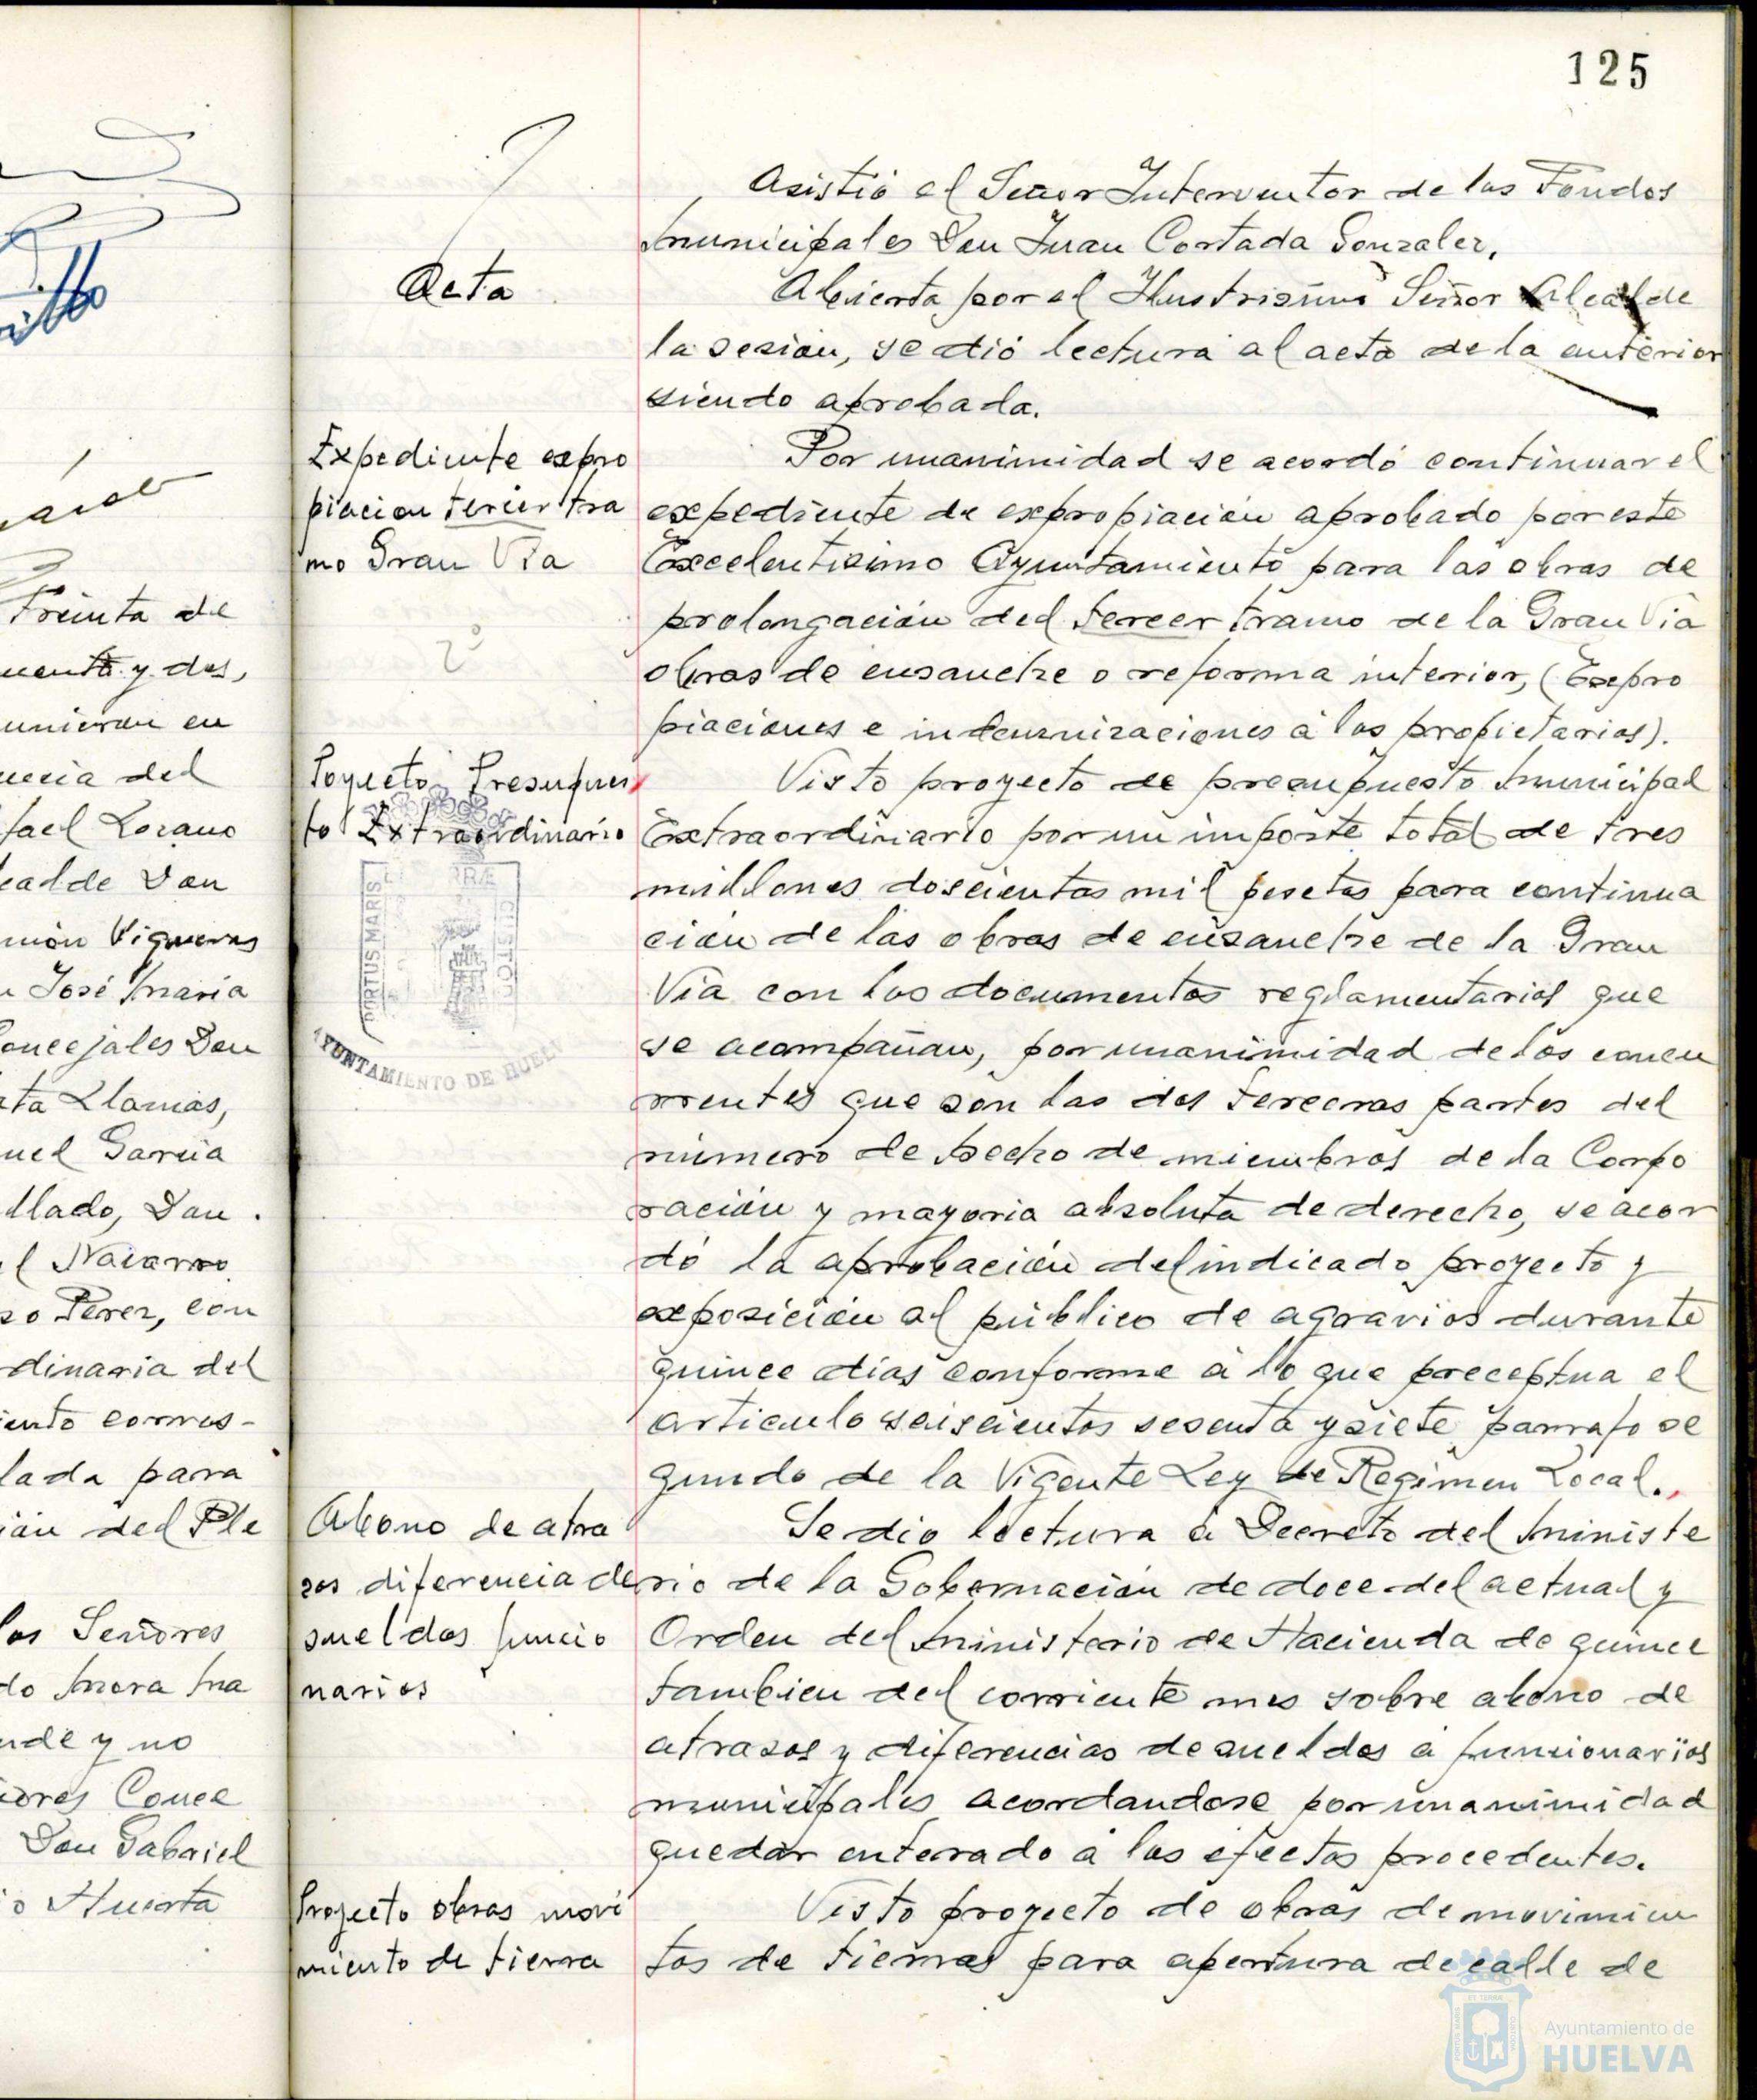 125
Treinta de
uenta y dos,
unieron en
uecia del
fael Lozano
calde Don
món Vigueras
n José María
Concejales Don
rta Llamas,
uel Garcia
llado, Don
l Navarro
so Perez, con
dinaria del
iento corres-
lada para
ión del Ple
los Señores
do Mora Ma
nde y no
ñores Conce
Don Gabriel
io Huerta
Acta
Asistió el Señor Interventor de los Fondos
Municipales Don Juan Cortada Gonzalez,
Abierta por el Ilustrisimo Señor Alcalde
la sesión, se dió lectura al acta de la anterior
siendo aprobada.
Expediente expro
piacion tercer tra
mo Gran Via
2º
Por unanimidad se acordó continuar el
expediente de expropiación aprobado por este
Excelentisimo Ayuntamiento para las obras de
prolongación del tercer tramo de la Gran Via
obras de ensanche o reforma interior, (Expro
piaciones e indemnizaciones á los propietarios).
Poyecto Presupues
to Extraordinario
Visto proyecto de presupuesto Municipal
Extraordinario por un importe total de tres
millones doscientas mil pesetas para continua
ción de las obras de ensanche de la Gran
Via con los documentos reglamentarios que
se acompañan, por unanimidad de los concu
rrentes que son las dos terceras partes del
número de hecho de miembros de la Corpo
ración y mayoria absoluta de derecho, se acor
dó la aprobación del indicado proyecto y
exposición al público de agravios durante
quince dias conforme á lo que preceptua el
articulo seiscientos sesenta y siete parrafo se
gundo de la Vigente Ley de Regimen Local.
PORTUS MARIS
AYUNTAMIENTO DE HUELV
Abono de atra
sos diferencia de
sueldos funcio
narios
Se dio lectura á Decreto del Ministe
rio de la Gobernación de doce del actual y
Orden del Ministerio de Hacienda de quince
tambien del corriente mes sobre abono de
atrasos y diferencias de sueldos á funcionarios
municipales acordandose por unanimidad
quedar enterado á los efectos procedentes.
Proyecto obras movi
miento de tierra
Visto proyecto de obras de movimien
tos de tierras para apertura de calle de
Ayuntamiento de
HUELVA